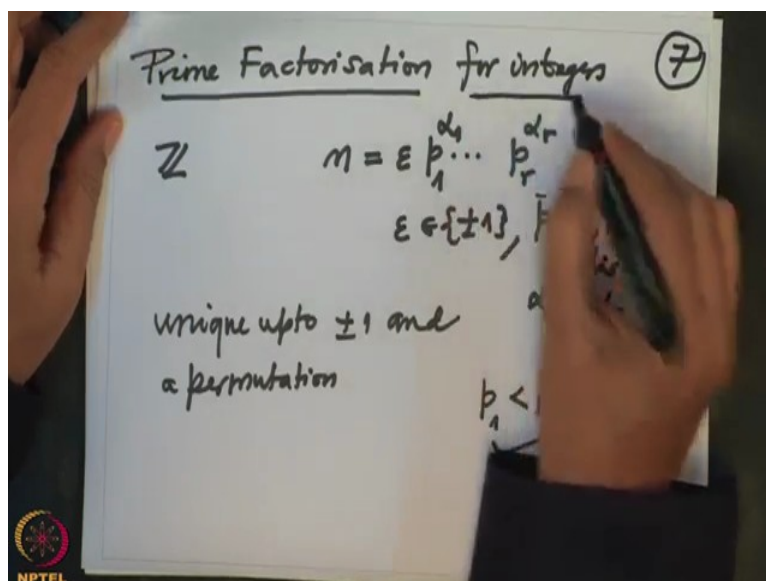 Prime Factorisation for integers 7
ℤ n = ε p₁^α₁ ⋯ p_r^α_r
ε ∈ {±1}, p
is
α
unique upto ±1 and
a permutation
p₁ <
NPTEL